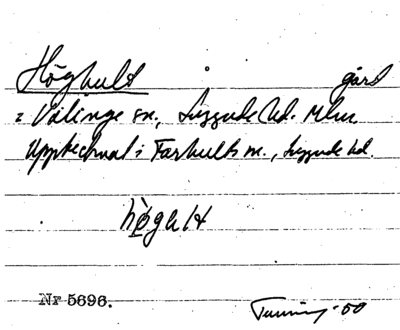 Höghult gård
i Välinge sn., Luggude hd. Mlm
Upptecknat i Farhults sn., Luggude hd.
Nr 5696.